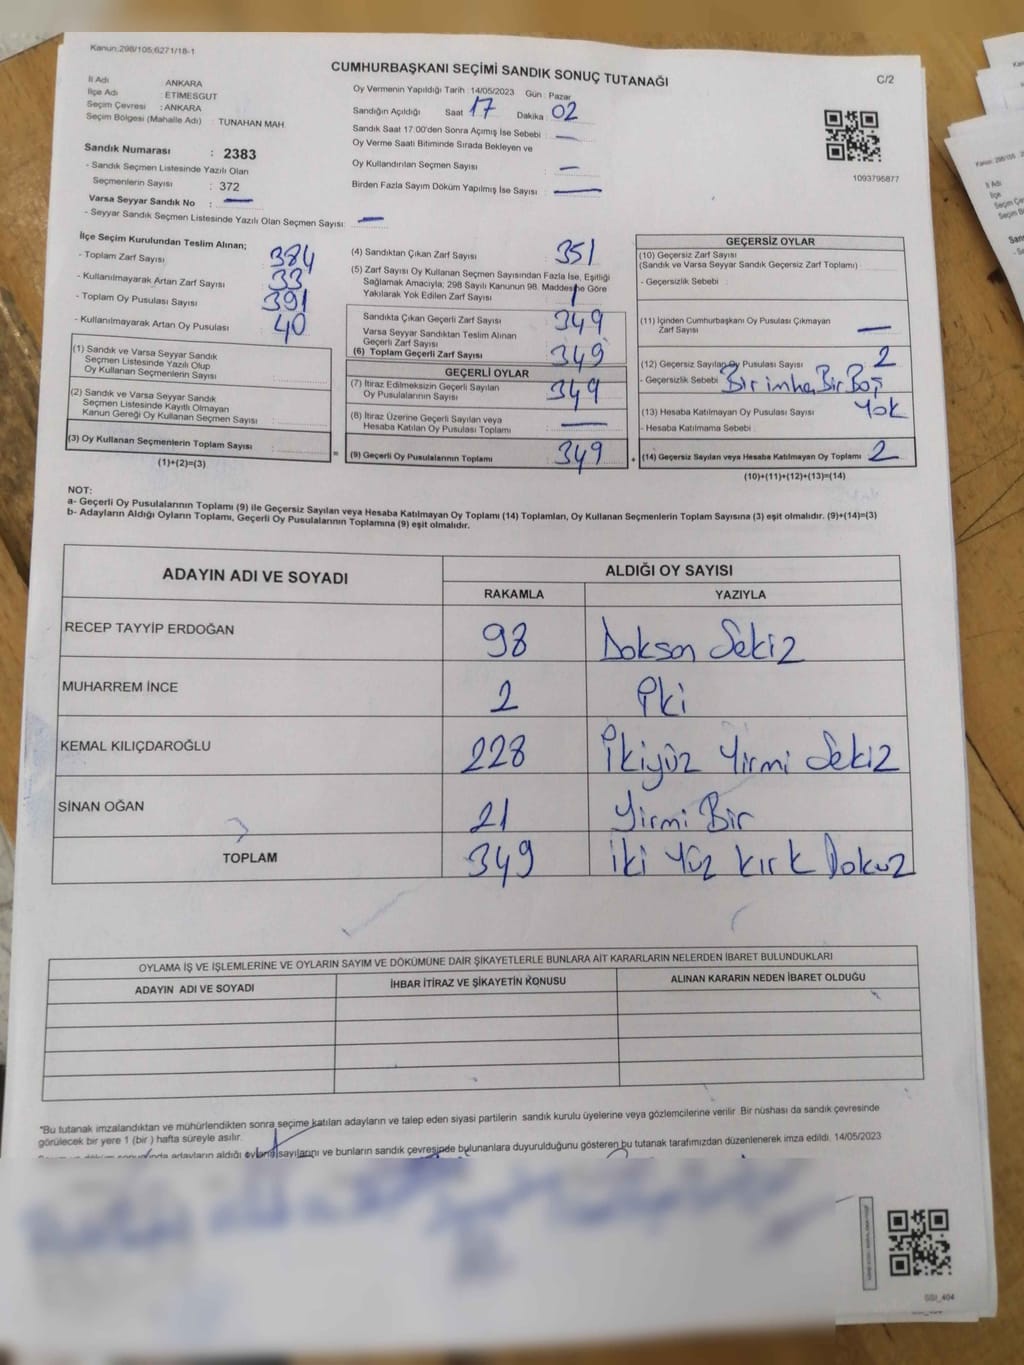 Kanun:298/105,6271/18-1
CUMHURBAŞKANI SEÇİMİ SANDIK SONUÇ TUTANAĞI
C/2
İl Adı ANKARA
İlçe Adı : ETİMESGUT
Seçim Çevresi : ANKARA
Seçim Bölgesi (Mahalle Adı) : TUNAHAN MAH.
Sandık Numarası : 2383
- Sandık Seçmen Listesinde Yazılı Olan
Seçmenlerin Sayısı : 372
Varsa Seyyar Sandık No : —
- Seyyar Sandık Seçmen Listesinde Yazılı Olan Seçmen Sayısı: —
Oy Vermenin Yapıldığı Tarih :14/05/2023 Gün : Pazar
Sandığın Açıldığı Saat 17 Dakika 02
Sandık Saat 17:00'den Sonra Açımış İse Sebebi : —
Oy Verme Saati Bitiminde Sırada Bekleyen ve
Oy Kullandırılan Seçmen Sayısı : —
Birden Fazla Sayım Döküm Yapılmış İse Sayısı : —
1093795877
İlçe Seçim Kurulundan Teslim Alınan;
- Toplam Zarf Sayısı 384
- Kullanılmayarak Artan Zarf Sayısı : 33
- Toplam Oy Pusulası Sayısı 391
- Kullanılmayarak Artan Oy Pusulası : 40
(1) Sandık ve Varsa Seyyar Sandık
Seçmen Listesinde Yazılı Olup
Oy Kullanan Seçmenlerin Sayısı
(2) Sandık ve Varsa Seyyar Sandık
Seçmen Listesinde Kayıtlı Olmayan
Kanun Gereği Oy Kullanan Seçmen Sayısı
(3) Oy Kullanan Seçmenlerin Toplam Sayısı
(1)+(2)=(3)
=
(4) Sandıktan Çıkan Zarf Sayısı : 351
(5) Zarf Sayısı Oy Kullanan Seçmen Sayısından Fazla İse, Eşitliği
Sağlamak Amacıyla; 298 Sayılı Kanunun 98. Maddesine Göre
Yakılarak Yok Edilen Zarf Sayısı :
Sandıkta Çıkan Geçerli Zarf Sayısı : 349
Varsa Seyyar Sandıktan Teslim Alınan
Geçerli Zarf Sayısı
(6) Toplam Geçerli Zarf Sayısı : 349
GEÇERLİ OYLAR
(7) İtiraz Edilmeksizin Geçerli Sayılan
Oy Pusulalarının Sayısı : 349
(8) İtiraz Üzerine Geçerli Sayılan veya
Hesaba Katılan Oy Pusulası Toplamı : —
(9) Geçerli Oy Pusulalarının Toplamı : 349
+
GEÇERSİZ OYLAR
(10) Geçersiz Zarf Sayısı
(Sandık ve Varsa Seyyar Sandık Geçersiz Zarf Toplamı)
- Geçersizlik Sebebi :
(11) İçinden Cumhurbaşkanı Oy Pusulası Çıkmayan
Zarf Sayısı : —
(12) Geçersiz Sayılan Oy Pusulası Sayısı : 2
- Geçersizlik Sebebi Bir imha Bir Boş
(13) Hesaba Katılmayan Oy Pusulası Sayısı Yok
- Hesaba Katılmama Sebebi :
(14) Geçersiz Sayılan veya Hesaba Katılmayan Oy Toplamı : 2
(10)+(11)+(12)+(13)=(14)
NOT:
a- Geçerli Oy Pusulalarının Toplamı (9) ile Geçersiz Sayılan veya Hesaba Katılmayan Oy Toplamı (14) Toplamları, Oy Kullanan Seçmenlerin Toplam Sayısına (3) eşit olmalıdır. (9)+(14)=(3)
b- Adayların Aldığı Oyların Toplamı, Geçerli Oy Pusulalarının Toplamına (9) eşit olmalıdır.
ADAYIN ADI VE SOYADI ALDIĞI OY SAYISI
RAKAMLA YAZIYLA
RECEP TAYYİP ERDOĞAN 98 Doksan Sekiz
MUHARREM İNCE 2 İki
KEMAL KILIÇDAROĞLU 228 İkiyüz Yirmi Sekiz
SİNAN OĞAN 21 Yirmi Bir
TOPLAM 349 iki Yüz Kırk Dokuz
OYLAMA İŞ VE İŞLEMLERİNE VE OYLARIN SAYIM VE DÖKÜMÜNE DAİR ŞİKAYETLERLE BUNLARA AİT KARARLARIN NELERDEN İBARET BULUNDUKLARI
ADAYIN ADI VE SOYADI İHBAR İTİRAZ VE ŞİKAYETİN KONUSU ALINAN KARARIN NEDEN İBARET OLDUĞU
"Bu tutanak imzalandıktan ve mühürlendikten sonra seçime katılan adayların ve talep eden siyasi partilerin sandık kurulu üyelerine veya gözlemcilerine verilir. Bir nüshası da sandık çevresinde
görülecek bir yere 1 (bir ) hafta süreyle asılır.
adayların aldığı oyların sayılarını ve bunların sandık çevresinde bulunanlara duyurulduğunu gösteren bu tutanak tarafımızdan düzenlenerek imza edildi. 14/05/2023
SSI_404